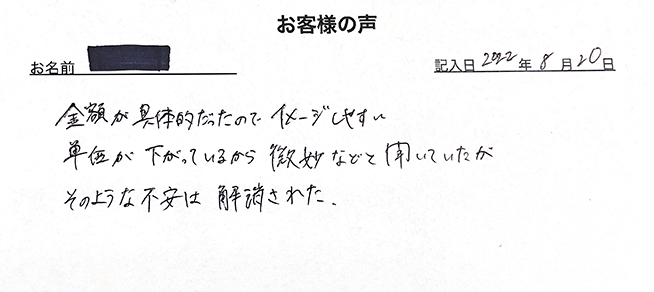 お客様の声
お名前
記入日 2022 年 8 月 20 日
金額が具体的だったので イメージしやすい
単価が 下がっているから 微妙などと 聞いていたが
そのような不安は 解消された.